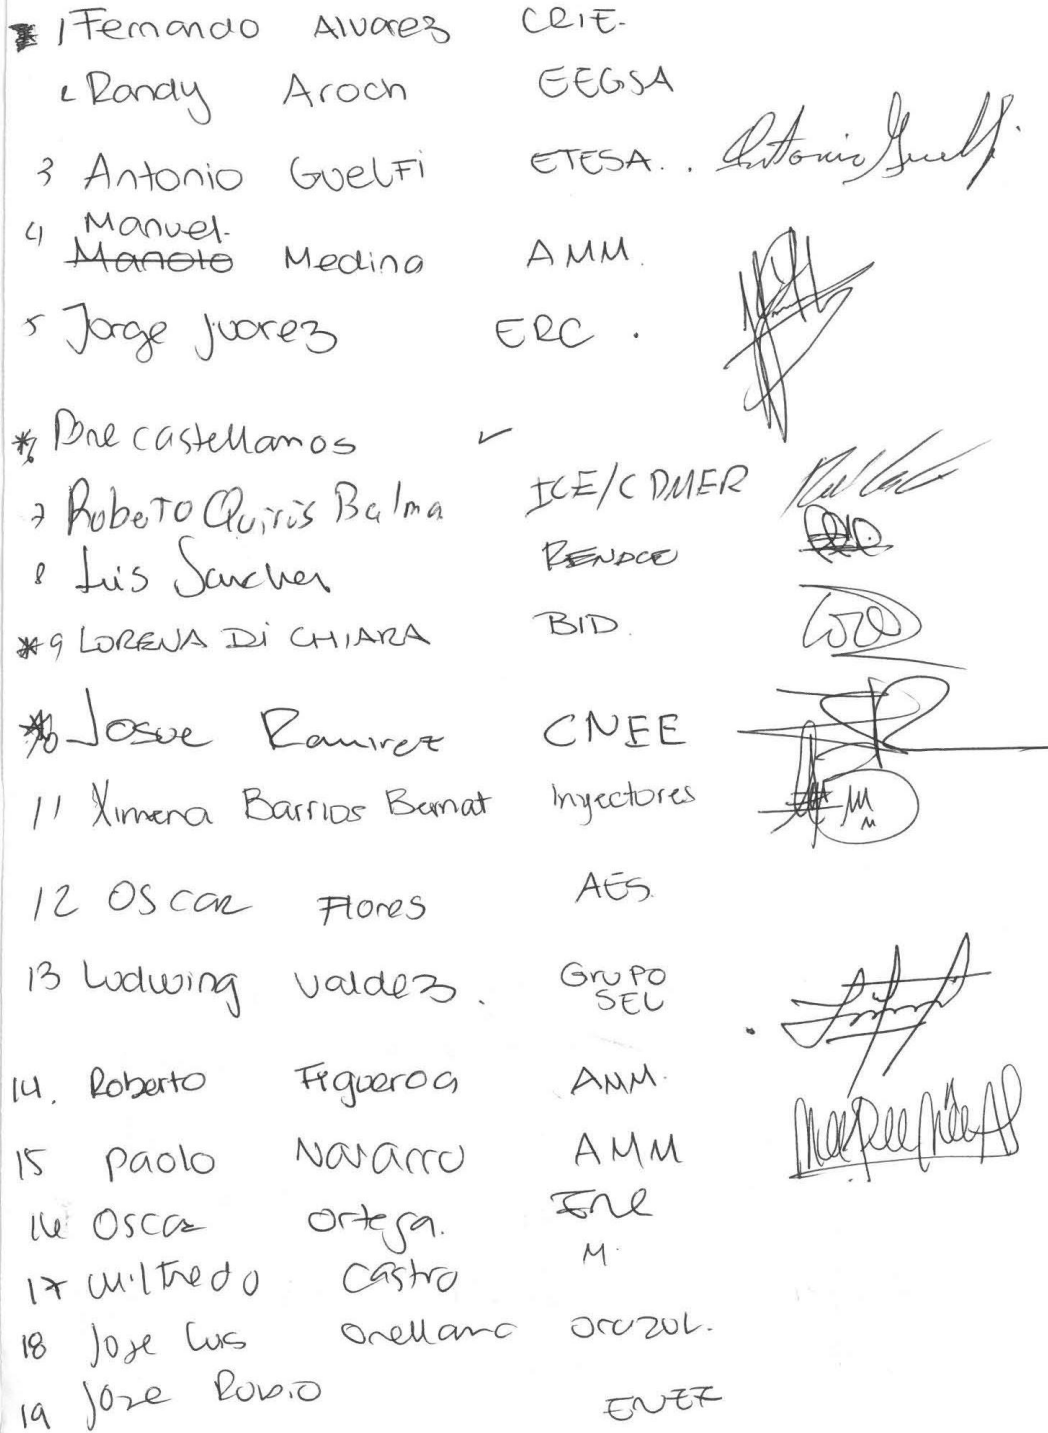 1 Fernando Alvarez CRIE.
2 Randy Aroch EEGSA
3 Antonio Guelfi ETESA. . Antonio Guelfi
4 Manuel.
Manolo Medina AMM.
5 Jorge Juarez ERC .
* Castellanos ✓
7 Roberto Quirós Balma ICE/CDMER
8 Luis Sanchez
*9 LORENA Di CHIARA BID.
Josue Ramirez CNEE
11 Ximena Barrios Bernat Inyectores
12 Oscar Flores AES.
13 Ludwing Valdez. Grupo
SEL
14. Roberto Figueroa AMM.
15 Paolo Navarro AMM
16 Oscar Ortega.
17 Wilfredo Castro M.
18 Jose Luis Orellana
19 Jose Rubio